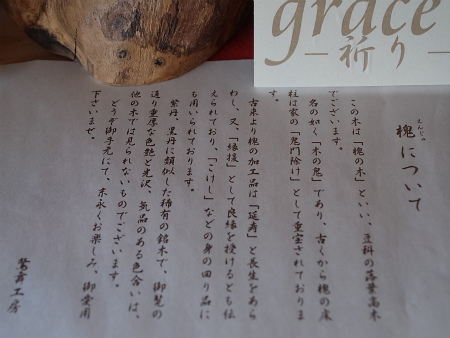 grace
祈り
槐について
えんじゅ
この木は「槐の木」といい、豆科の落葉高木
でございます。
名の如く「木の鬼」であり、古くから槐の床
柱は家の「鬼門除け」として重宝されておりま
す。
古来より槐の加工品は「延寿」と長生をあら
わし、又、「縁授」として良縁を授けるとも伝
えられており、「こけし」などの身の回り品に
も用いられております。
紫丹、黒丹に類似した稀有の銘木で、御覧の
通り重厚な色艶と光沢、気品のある色合いは、
他の木では見られないものでございます。
どうぞ御手元にて、末永くお楽しみ、御愛用
下さいませ。
鷲斉工房